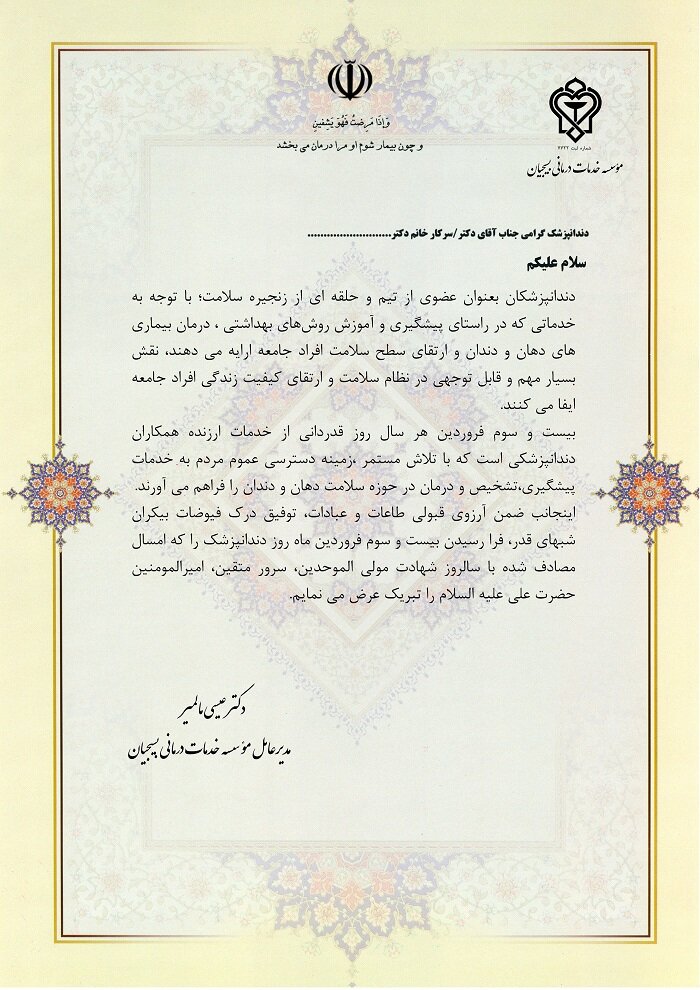 وَإِذَا مَرِضْتُ فَهُوَ يَشْفِينِ
و چون بیمار شوم او مرا درمان می بخشد
شماره ثبت ۷۷۲۲
مؤسسه خدمات درمانی بسیجیان
دندانپزشک گرامی جناب آقای دکتر/سرکار خانم دکتر..........................
سلام علیکم
دندانپزشکان بعنوان عضوی از تیم و حلقه ای از زنجیره سلامت؛ با توجه به
خدماتی که در راستای پیشگیری و آموزش روش‌های بهداشتی ، درمان بیماری
های دهان و دندان و ارتقای سطح سلامت افراد جامعه ارایه می دهند، نقش
بسیار مهم و قابل توجهی در نظام سلامت و ارتقای کیفیت زندگی افراد جامعه
ایفا می کنند.
بیست و سوم فروردین هر سال روز قدردانی از خدمات ارزنده همکاران
دندانپزشکی است که با تلاش مستمر ،زمینه دسترسی عموم مردم به خدمات
پیشگیری،تشخیص و درمان در حوزه سلامت دهان و دندان را فراهم می آورند.
اینجانب ضمن آرزوی قبولی طاعات و عبادات، توفیق درک فیوضات بیکران
شبهای قدر، فرا رسیدن بیست و سوم فروردین ماه روز دندانپزشک را که امسال
مصادف شده با سالروز شهادت مولی الموحدین، سرور متقین، امیرالمومنین
حضرت علی علیه السلام را تبریک عرض می نمایم.
دکتر عیسی مالمیر
مدیرعامل مؤسسه خدمات درمانی بسیجیان